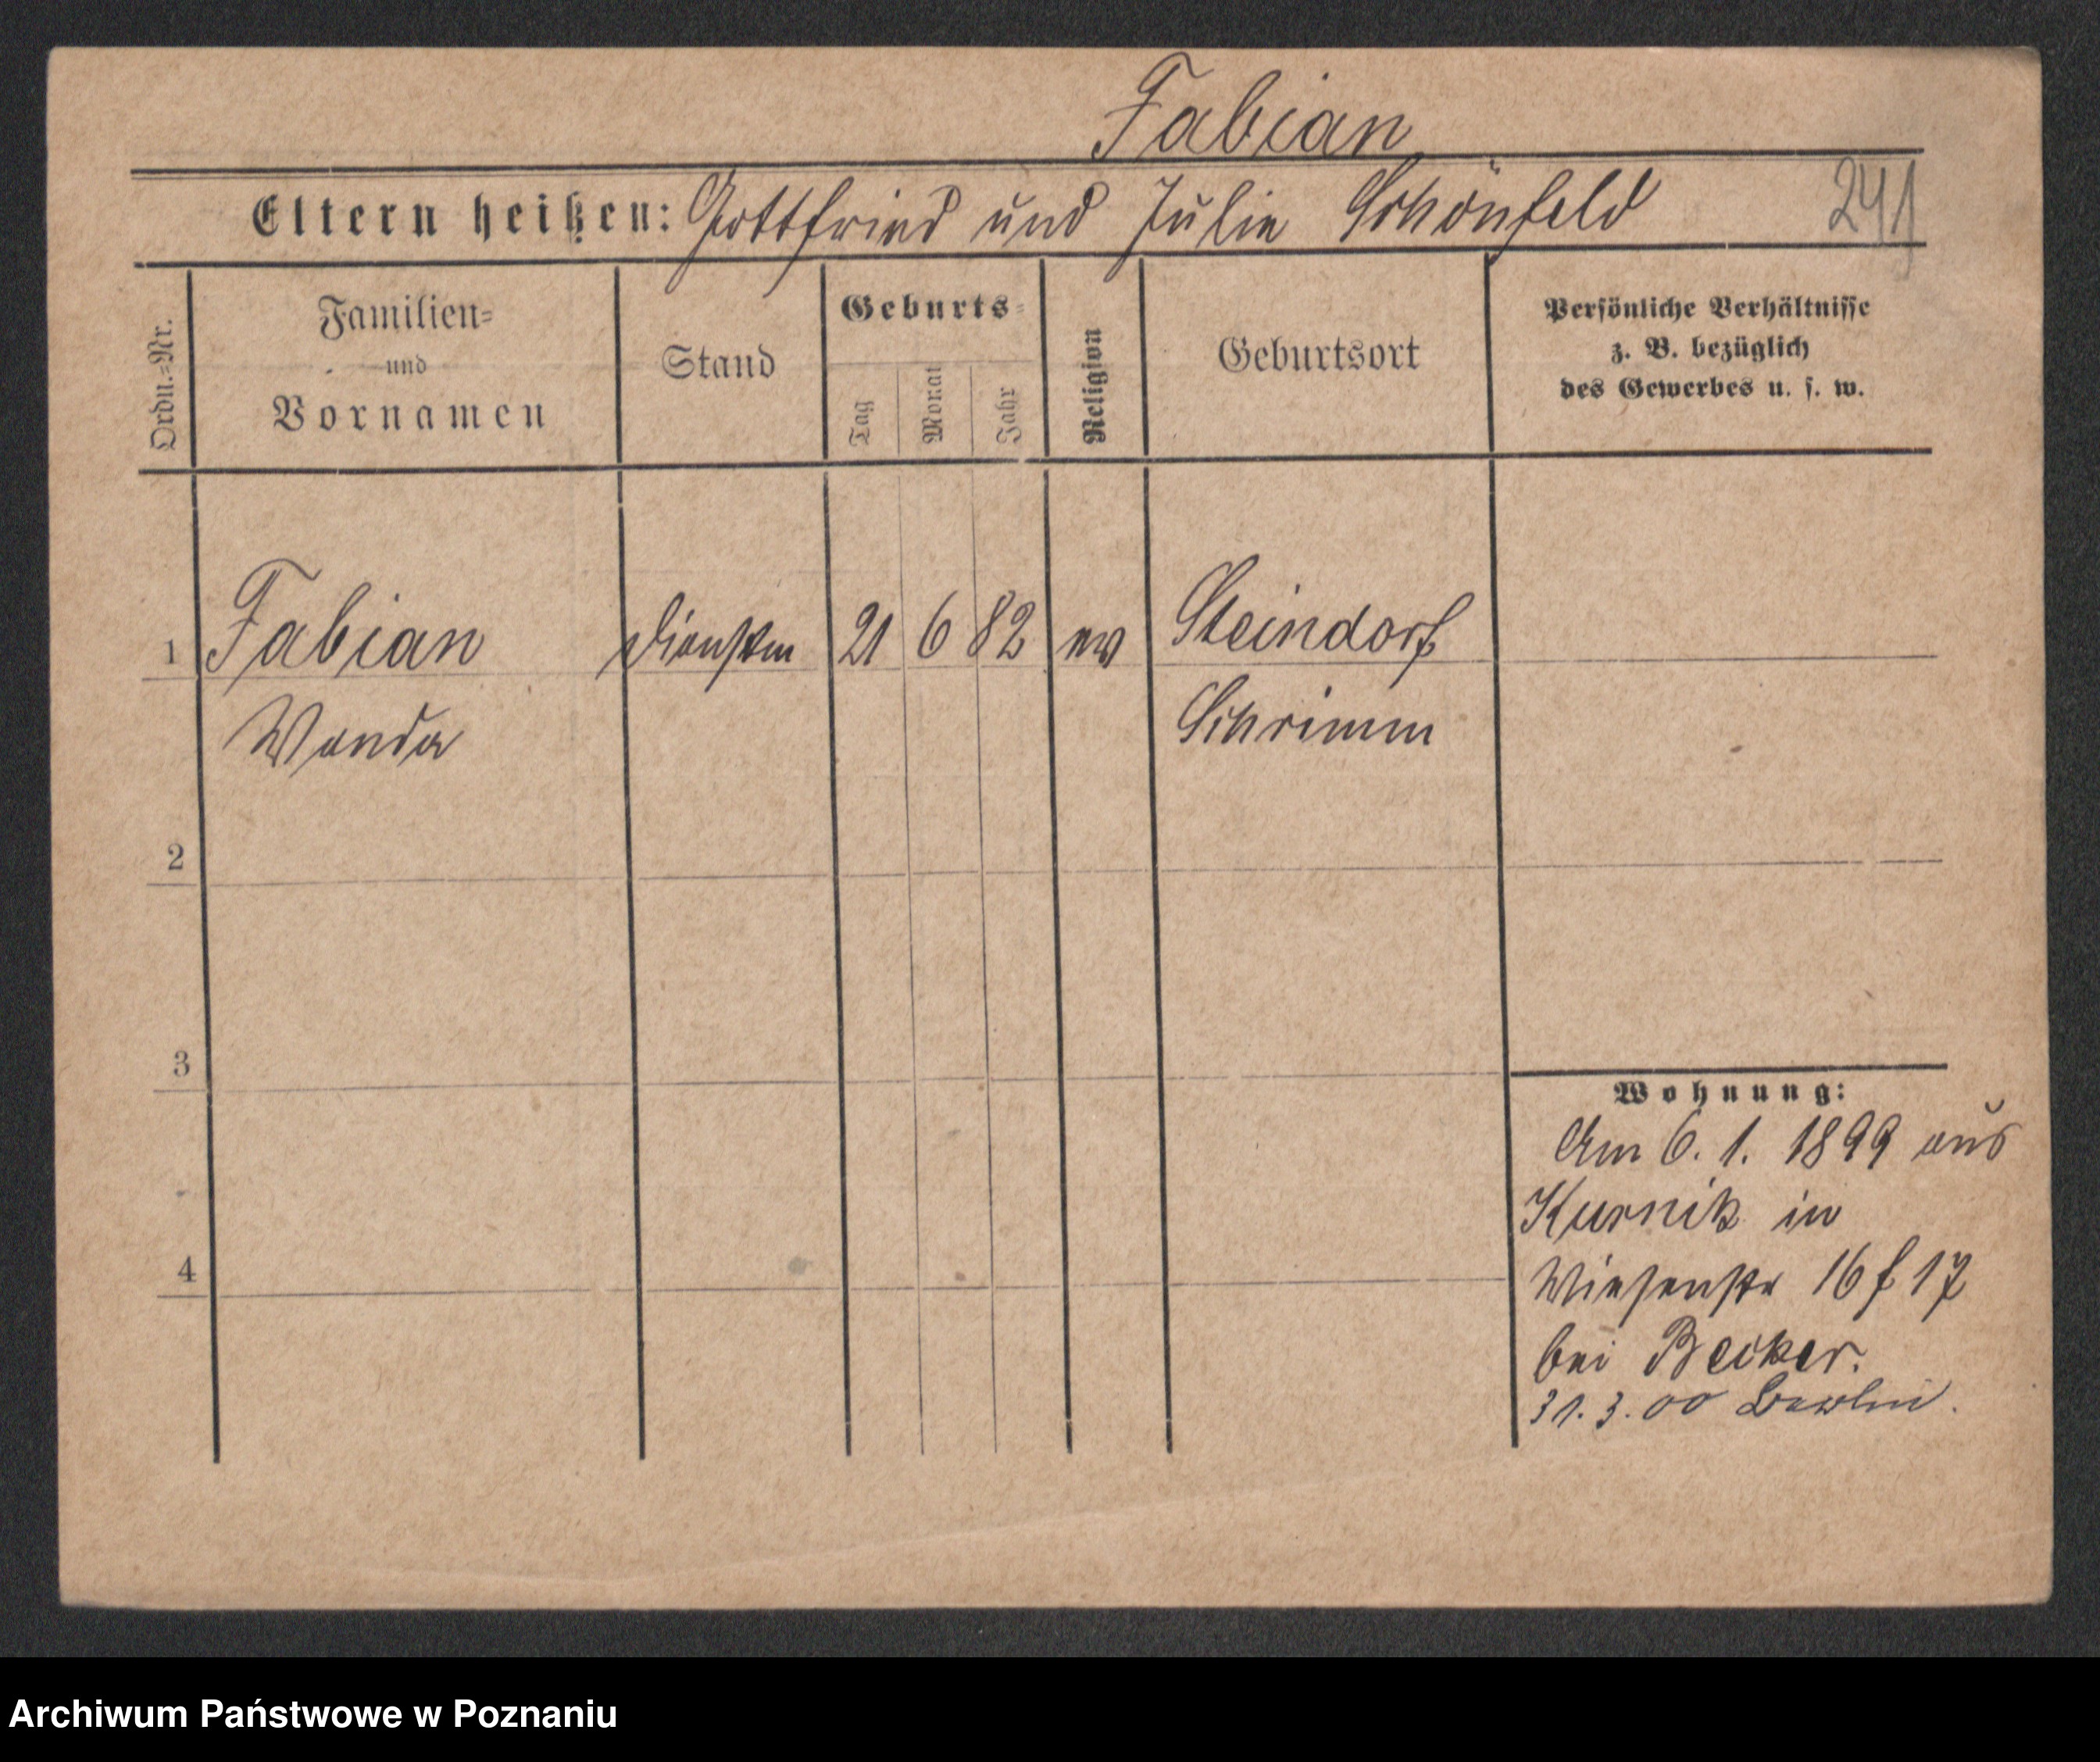 Fabian
Eltern heißen: Gottfried und Julie Schönfeld 241
Ordn.=Nr.
Familien=
und
Vornamen
Stand
Geburts=
Tag
Monat
Jahr
Religion
Geburtsort
Persönliche Verhältnisse
z. B. bezüglich
des Gewerbes u. s. w.
1 Fabian Dienstm 21 6 82 ev Steindorf
Wanda Schrimm
2
3
Wohnung:
Am 6. 1. 1899 aus
Kurnik in
4
Wiesenstr 16 f 17
bei Becker.
31. 3. 00 Berlin.
Archiwum Państwowe w Poznaniu